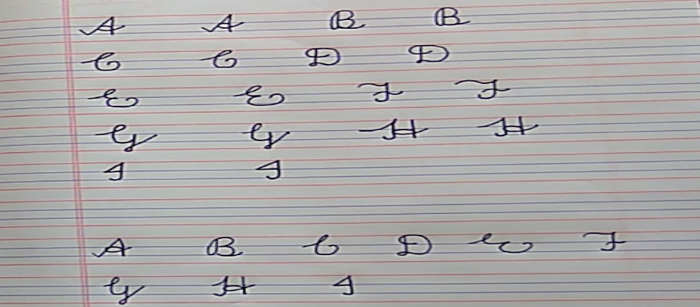 A A B B
C C D D
E E F F
G G H H
I I
A B C D E F
G H I